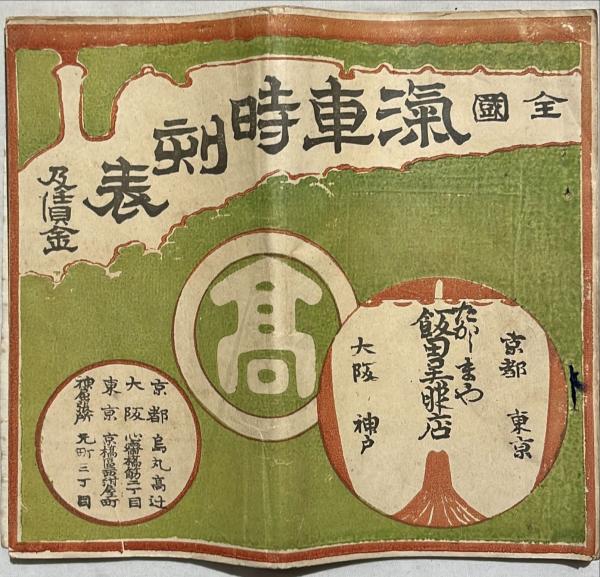 全國
滊車時刻表
及賃金
髙
京都 東京
たかしまや
飯田呉服店
大阪 神戸
京都 烏丸高辻
大阪 心齋橋筋二丁目
東京 京橋區西紺屋町
神戸出張所 元町三丁目